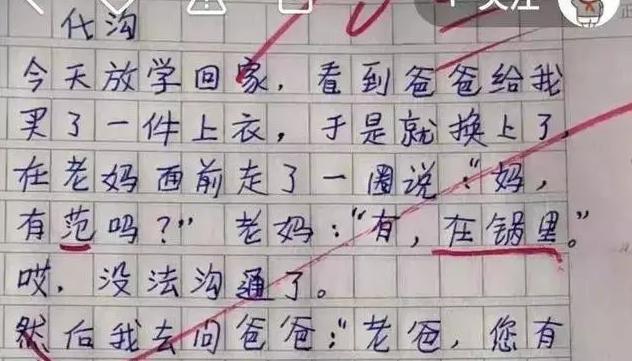 关注
代沟
今天放学回家，看到爸爸给我
买了一件上衣，于是就换上了，
在老妈面前走了一圈说："妈，
有范吗？"老妈："有，在锅里。"
哎，没法沟通了。
然后我去问爸爸："老爸，您有